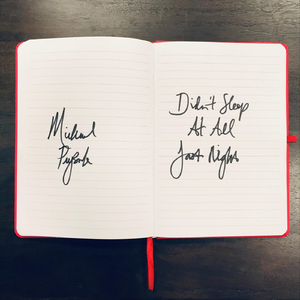 Michael
Didn't Sleep
At All
Last Night